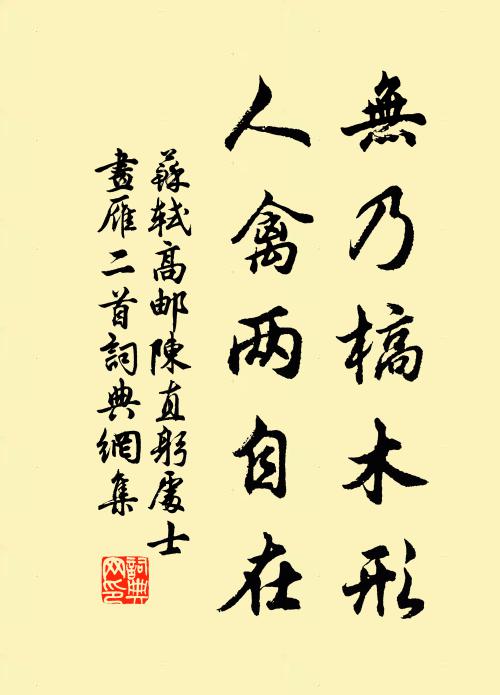 無乃槁木形
人禽两自在
蘇軾高邮陳直躬處士
畫雁二首詞典網集
詞典
网印